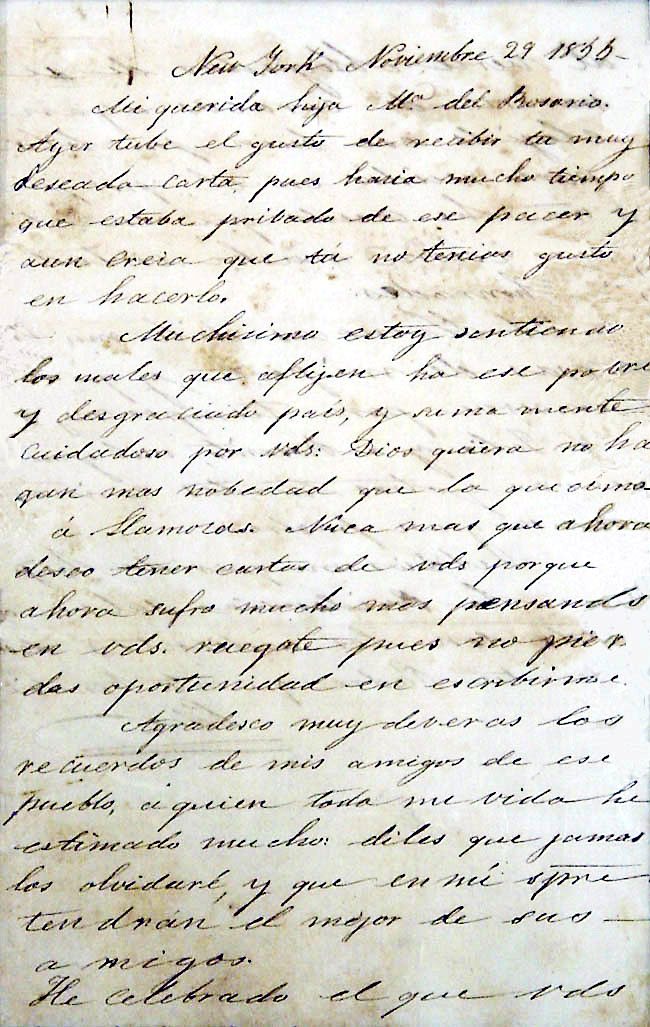 New York Noviembre 29 1855-
Mi querida hija Mª del Rosario.
Ayer tube el gusto de recibir tu muy
deseada carta, pues hacia mucho tiempo
que estaba pribado de ese pacer y
aun creia que tú no tenias gusto
en hacerlo.
Muchisimo estoy sentiendo
los males que aflijen ha ese pobre
y desgraciado país, y suma mente
cuidadoso por vds: Dios quiera no ha
gan mas nobedad que la que
á Llamozas. Nuca mas que ahora
deseo tener cartas de vds porque
ahora sufro mucho mas pensando
en vds. ruegote pues no pier
das oportunidad en escribirme.
Agradesco muy deveras los
recuerdos de mis amigos de ese
pueblo, á quien toda mi vida he
estimado mucho: diles que jamas
los olvidaré, y que en mí spre
tendrán el mejor de sus —
amigos.
He celebrado el que vds